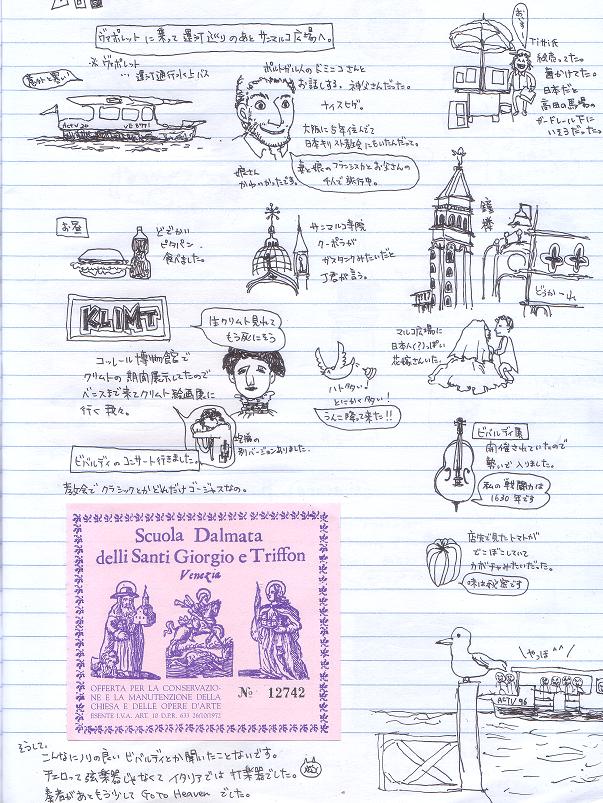 ヴァポレットに乗って運河巡りのあとサンマルコ広場へ。
※ ヴァポレット
… 運河通行水上バス
意外と速い!
ACTV 20
ポルトガル人のドミニコさんと
お話しする。神父さんだった。
ナイスヒゲ。
大阪に5年住んで
日本キリスト教会にもいたんだって。
妻と娘のフランシスカとお父さんの
4人で旅行中。
娘さん
かわいかったです。
Tシャツ
絵売ってた。
日本だと
高田の馬場の
ガードレール下に
いそうだった。
お昼
どでかい
ピタパン
食べました。
サンマルコ寺院
クーポラが
ガスタンクみたいだと
丁君が言う。
鐘楼
KLIMT
生クリムト見れて
もう死にそう
コッレール博物館で
クリムトの期間展示してたので
ベニスまで来てクリムト絵画展に
行く我々。
ハト多い!
とにかく多い!
うんこ降って来た!!
マルコ広場に
日本人(?)っぽい
花嫁さんいた。
別バージョンありました。
ビバルディのコンサート行きました。
教会でクラシックとかどれだけゴージャスなの。
ビバルディ展
開催されていたので
勢いで入りました。
私の戦闘力は
1630年です
店先で見たトマトが
でこぼこしていて
カボチャみたいだった。
味は秘密です
Scuola Dalmata
delli Santi Giorgio e Triffon
Venezia
OFFERTA PER LA CONSERVAZIO-
NE E LA MANUTENZIONE DELLA
CHIESA E DELLE OPERE D'ARTE
ESENTE I.V.A. ART. 10 D.P.R. 633 26/10/1972
No 12742
やっほ^^
ACTV 96
そうして、
こんなにノリの良いビバルディとか聞いたことないです。
チェロって弦楽器じゃなくてイタリアでは打楽器でした。
奏者があともう少しで Go To Heaven でした。